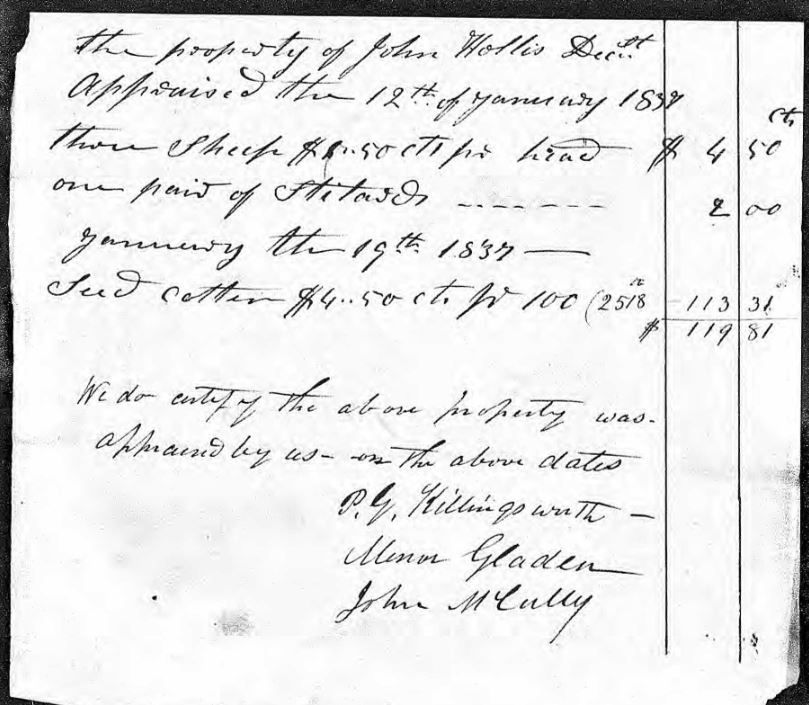 the property of John Hollis Decst
Appraised the 12th of January 1837
cts
three Sheep $1..50 cts pr head $ 4 50
one paid of Stilards ------- 2 00
January the 19th 1837 —
Seed cotten $4..50 cts pr 100 (2518 - 113 31
$ 119 81
We do certify the above property was
appraised by us - on the above dates
P. G. Killingsworth —
Minor Gladen
John McCully